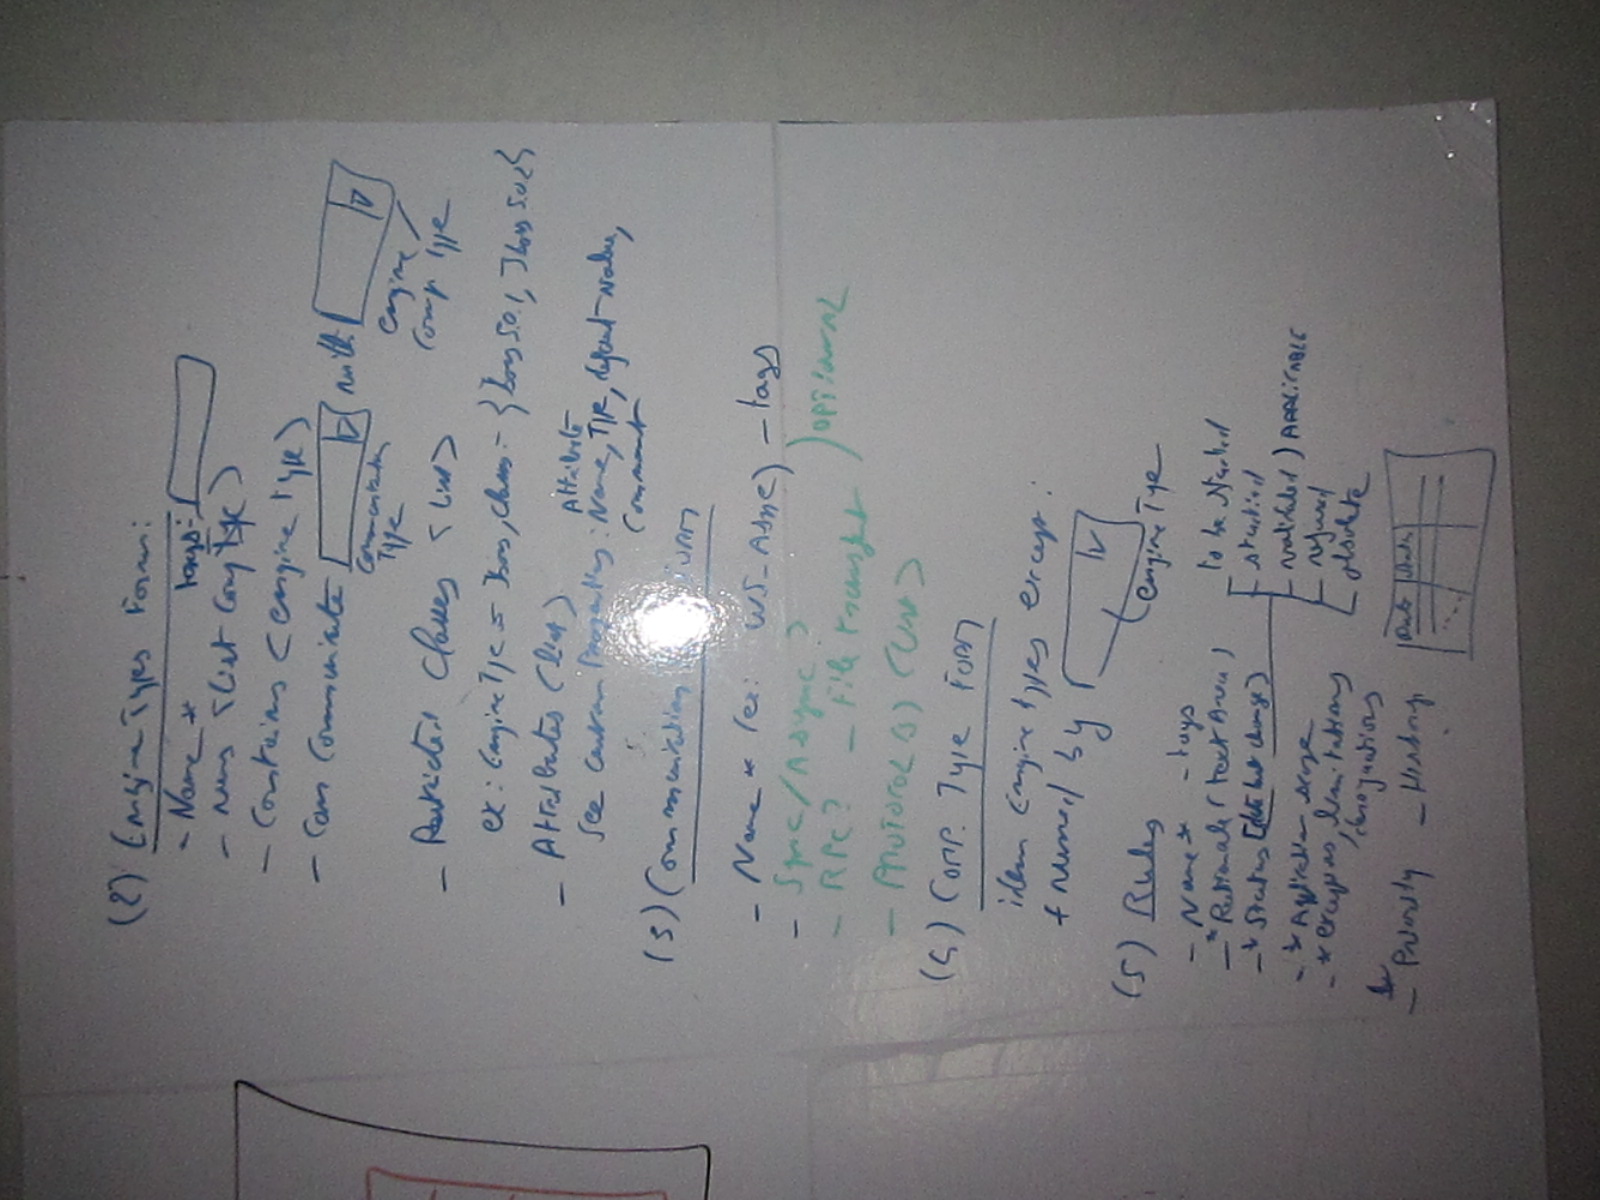 (2) Engine Types Form:
- Name * tags:
- runs <list Comp Type>
- Contains <engine type>
- Can Communicate with
Communication Type
engine / Comp Type
- Restricted Classes <list>
ex: Engine Type = Jboss, class = {Jboss 5.0.1, Jboss 5.0.2}
- Attributes (list)
Attribute
See custom Properties: Name, Type, default value,
Comment
(3) Communication FORM
- Name * (ex: WS_Async) - tags
- Sync/Async ?
- RPC? - File transfert
) OPTIONAL
- PROTOCOL(S) <list>
(4) COMP. Type FORM
idem Engine types except:
+ runned by
engine Type
(5) Rules
- Name* - tags
- *Rationale (text Area)
- *Status [date last change]
to be studied
- studied
- validated ) APPLICABLE
- refused
obsolete
- *Application scope
- *exceptions, limitations
/derogations
- *Priority - History
Date Status